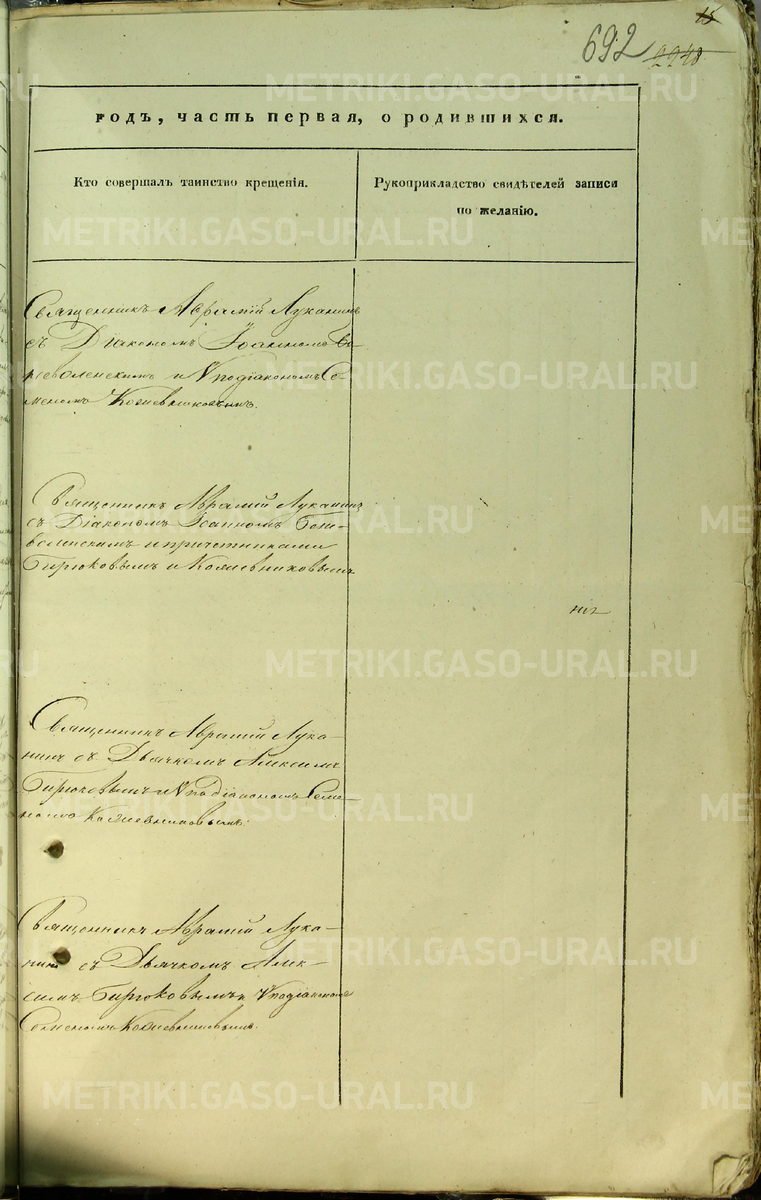 15
692 2248
годъ, часть первая, о родившихся.
Кто совершалъ таинство крещенія.
Рукоприкладство свидѣтелей записи
по желанію.
Священникъ Аврамій Луканинъ
съ Діакономъ Іоанномъ
и Vподіакономъ Се-
меномъ Кожевниковымъ.
Священникъ Аврамій Луканинъ
съ Діакономъ Іоанномъ
и причетниками
Бирюковымъ и Кожевниковымъ
Священникъ Аврамій Лука-
нинъ съ Дьячкомъ Алексѣемъ
Бирюковымъ и Vподіакономъ Семе-
номъ Кожевниковымъ.
Священникъ Аврамій Лука-
нинъ съ Дьячкомъ Алек-
сѣемъ Бирюковымъ и Vподіакономъ
Семеномъ Кожевниковымъ.
METRIKI.GASO-URAL.RU